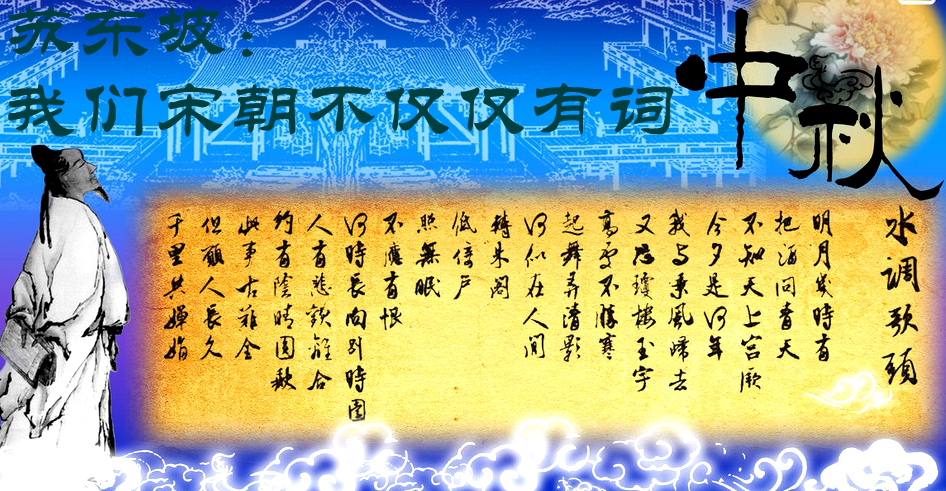 苏东坡：
我们宋朝不仅仅有词
中秋
水調歌頭
明月幾時有
把酒問青天
不知天上宮厥
今夕是何年
我与乘風歸去
又恐瓊樓玉宇
高處不勝寒
起舞弄清影
何似在人間
轉朱閣
低倚戶
照無眠
不應有恨
何時長向別時圓
人有悲歡離合
約有陰晴圓缺
此事古難全
但願人長久
千里共嬋娟